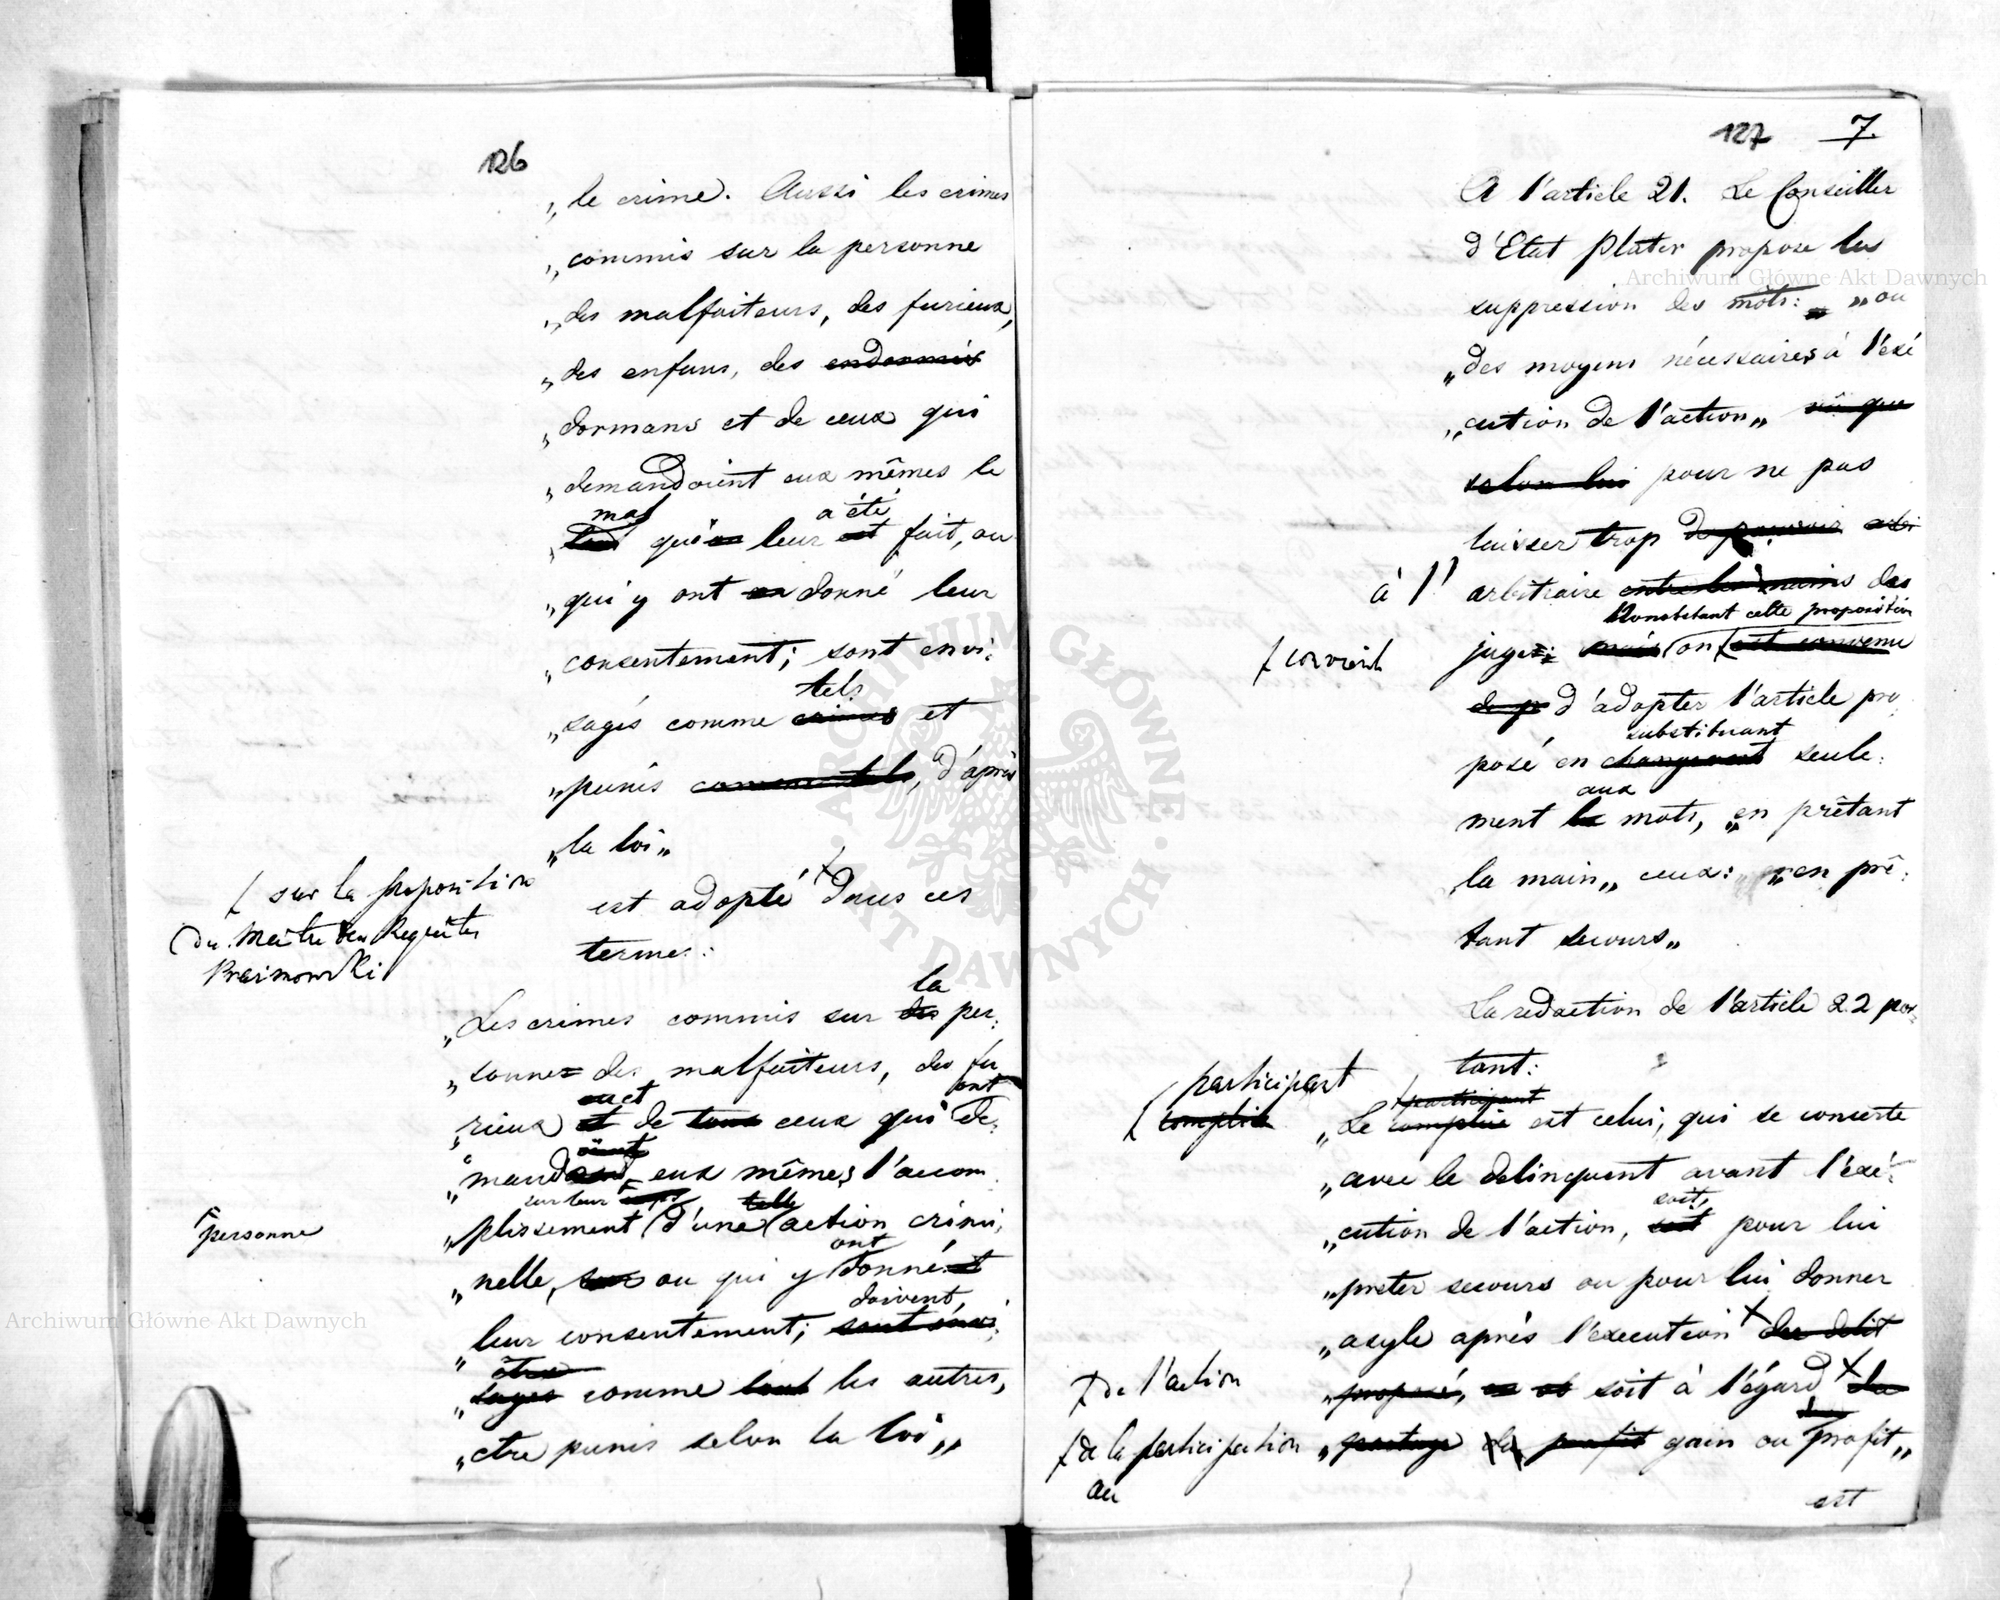 126
„le crime. Aussi les crimes
„commis sur la personne
„des malfaiteurs, des furieux,
„des enfans, des endormis
„dormans et de ceux qui
„demandoient eux mêmes le
mal a été
qui leur est fait, ou
„qui y ont donné leur
„consentement; sont envi:
tels
„sagés comme crimes et
„punis comme tels, d'après
„la loi„
ſ sur la proposition
du Maitre des Requêtes
est adopté dans ces
termes:
la
„Les crimes commis sur des per:
„sonnes des malfaiteurs, des fu
et ont
„rieux et de tous ceux qui de:
oient
„mand eux mêmes l'accom
sur leur telle
personne
„plissement d'une action crimi:
ont
„nelle, ou qui y donné
doivent
„leur consentement; sont envi:
être
„sagés comme tout les autres,
„etre punis selon la loi„
127 7.
A l'article 21. Le Conseiller
d'Etat Plater propose les
suppression des mots: „ou
„des moyens nécessaires à l'exé
„cution de l'action„ vû que
selon lui pour ne pas
laisser trop de pouvoir
à l' arbitraire entre les mains des
Nonobstant cette proposition
ſ convient
juges: mais on est convenu
de p d'adopter l'article pro
substituant
posé en changeant seule:
aux
ment le mots, „en prêtant
la main„ ceux: „en prê:
tant secours„
La redaction de l'article 22 por:
tant:
participant
complice
participant
„Le complice est celui, qui se concerte
„avec le delinquent avant l'exé:
soit,
„cution de l'action, soit pour lui
„preter secours ou pour lui donner
„asyle après l'execution du delit
de l'action
„proposé, soit à l'égard du
de la participation
au
„partage du profit gain ou profit„
est
Archiwum Główne Akt Dawnych
Archiwum Główne Akt Dawnych
ARCHIWUM GŁÓWNE AKT DAWNYCH